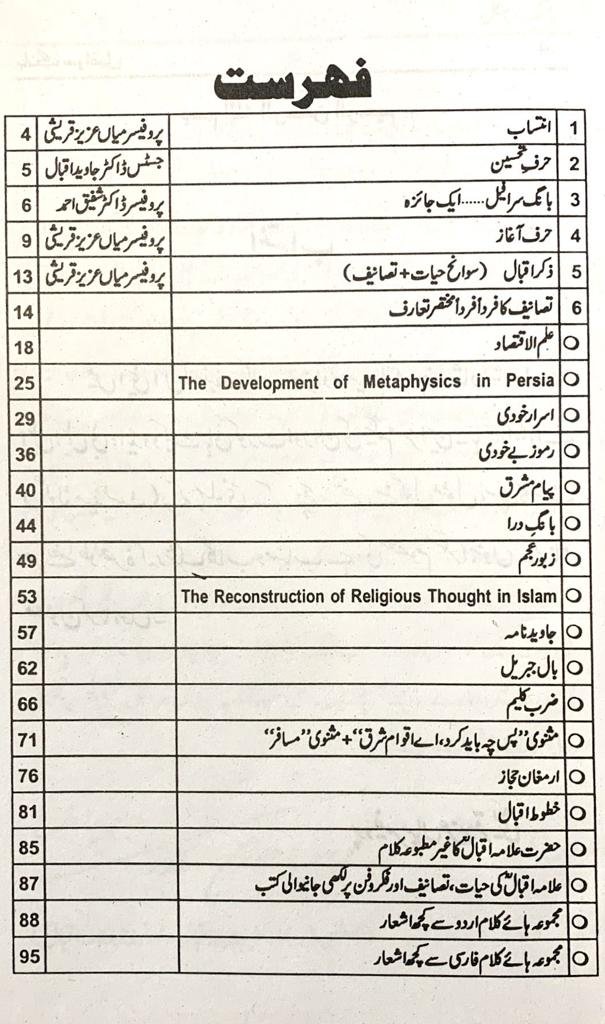 فہرست
1 انتساب پروفیسر میاں عزیز قریشی 4
2 حرفِ تحسین جسٹس ڈاکٹر جاوید اقبال 5
3 بانگِ سرافیل......ایک جائزہ پروفیسر ڈاکٹر شفیق احمد 6
4 حرف آغاز پروفیسر میاں عزیز قریشی 9
5 ذکر اقبال (سوانح حیات + تصانیف) پروفیسر میاں عزیز قریشی 13
6 تصانیف کا فرداً فرداً مختصر تعارف 14
علم الاقتصاد 18
The Development of Metaphysics in Persia 25
اسرار خودی 29
رموز بے خودی 36
پیام مشرق 40
بانگِ درا 44
زبور عجم 49
The Reconstruction of Religious Thought in Islam 53
جاوید نامہ 57
بال جبریل 62
ضرب کلیم 66
مثنوی "پس چہ باید کرد، اے اقوام شرق" + مثنوی "مسافر" 71
ارمغان حجاز 76
خطوط اقبال 81
حضرت علامہ اقبالؒ کا غیر مطبوعہ کلام 85
علامہ اقبالؒ کی حیات، تصانیف اور فکر و فن پر لکھی جانیوالی کتب 87
مجموعہ ہائے کلام اردو سے کچھ اشعار 88
مجموعہ ہائے کلام فارسی سے کچھ اشعار 95